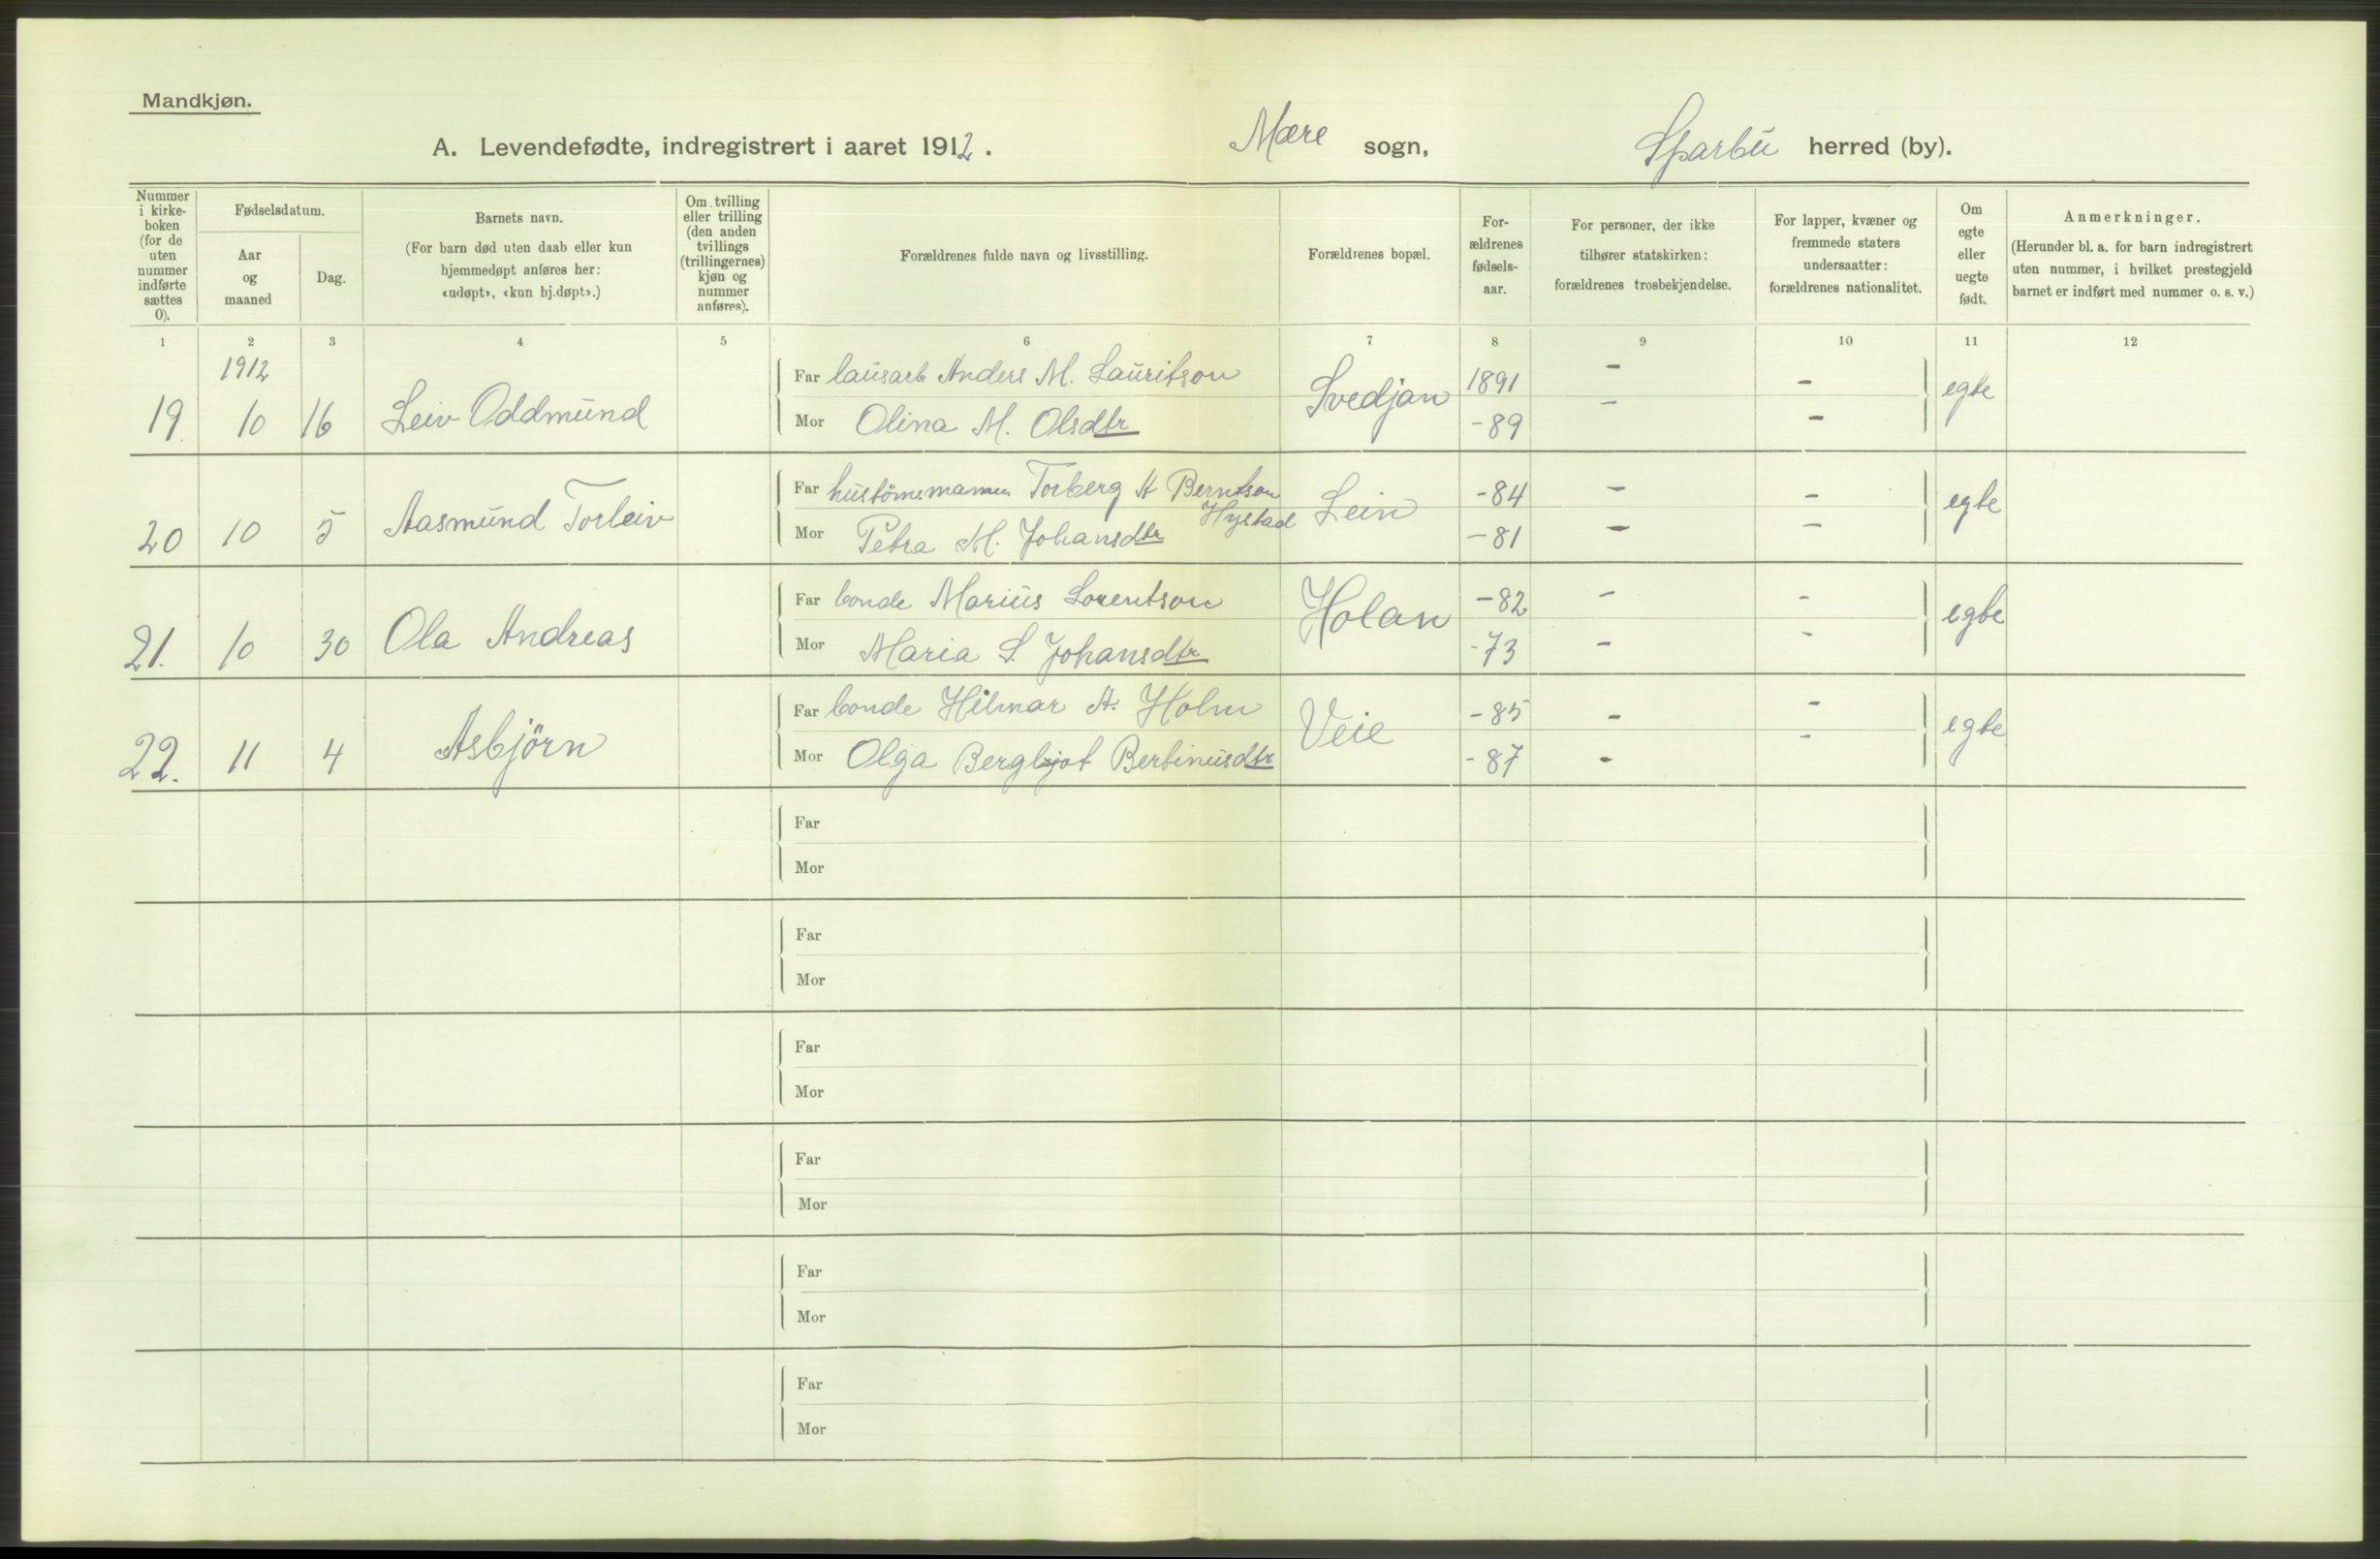 Mandkjøn.
A. Levendefødte, indregistrert i aaret 1912. Mære sogn, Sparbu herred (by).
Nummer i kirkeboken (for de uten nummer indførte sættes 0).
Fødselsdatum.
Aar og maaned
Dag.
Barnets navn.
(For barn død uten daab eller kun hjemmedøpt anføres her: «udøpt», «kun hj.døpt».)
Om tvilling eller trilling (den anden tvillings (trillingernes) kjøn og nummer anføres).
Forældrenes fulde navn og livsstilling.
Forældrenes bopæl.
Forældrenes fødselsaar.
For personer, der ikke tilhører statskirken: forældrenes trosbekjendelse.
For lapper, kvæner og fremmede staters undersaatter: forældrenes nationalitet.
Om egte eller uegte født.
Anmerkninger.
(Herunder bl. a. for barn indregistrert uten nummer, i hvilket prestegjeld barnet er indført med nummer o. s. v.)
1 2 3 4 5 6 7 8 9 10 11 12
1912
19. 10 16 Leiv Oddmund Far lausarb Anders M. Lauritson Svedjan 1891 - - egte
Mor Olina M. Olsdtr -89 - -
20 10 5 Aasmund Torleiv Far Torberg A Berntson Hystad Lein -84 - - egte
Mor Petra M. Johansdtr -81 - -
21. 10 30 Ola Andreas Far bonde Marius Lorentson Holan -82 - - egte
Mor Maria S. Johansdtr -73 - -
22. 11 4 Asbjörn Far bonde Hilmar A. Holm Veie -85 - - egte
Mor Olga Bergljot Bertinusdtr -87 - -
Far
Mor
Far
Mor
Far
Mor
Far
Mor
Far
Mor
Far
Mor